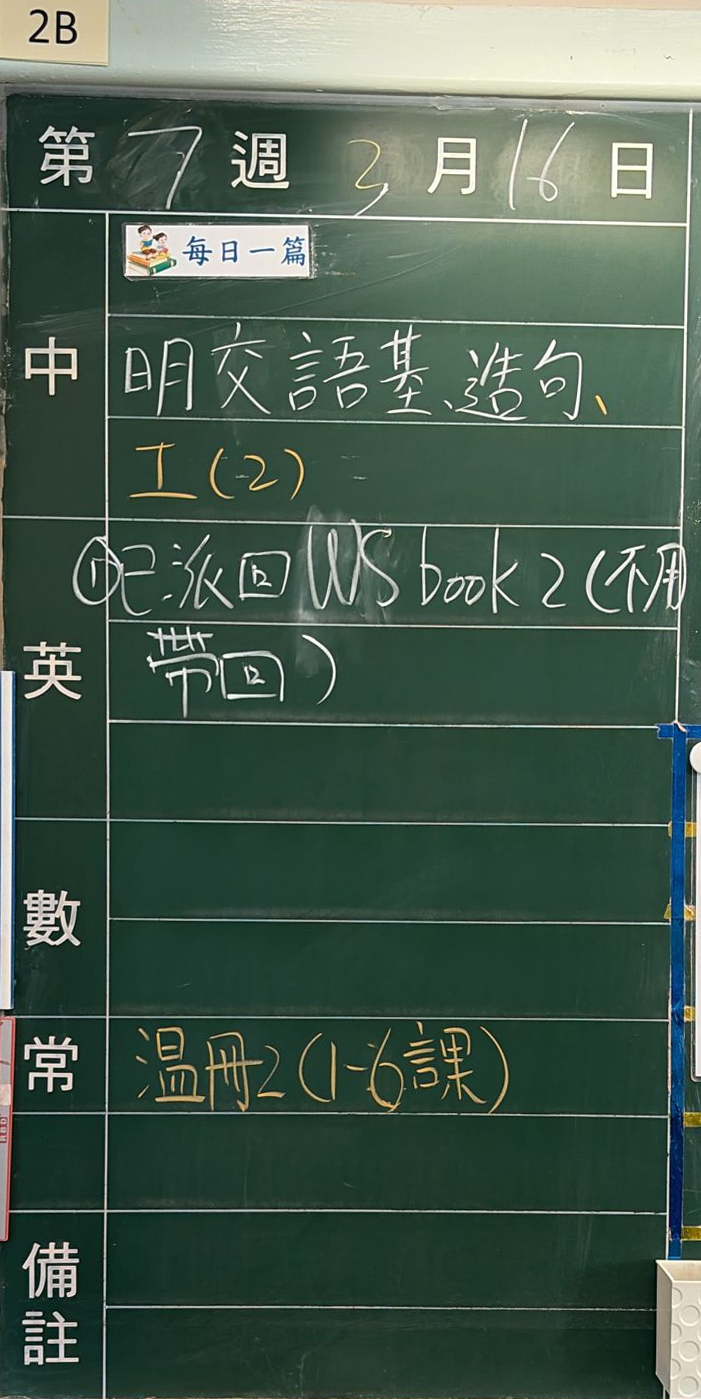 2B
第 7 週 3 月 16 日
每日一篇
中
明交語基、造句、
工(2)
①已派回WS book 2(不用
英
帶回)
數
常
温冊2(1-6課)
備
註